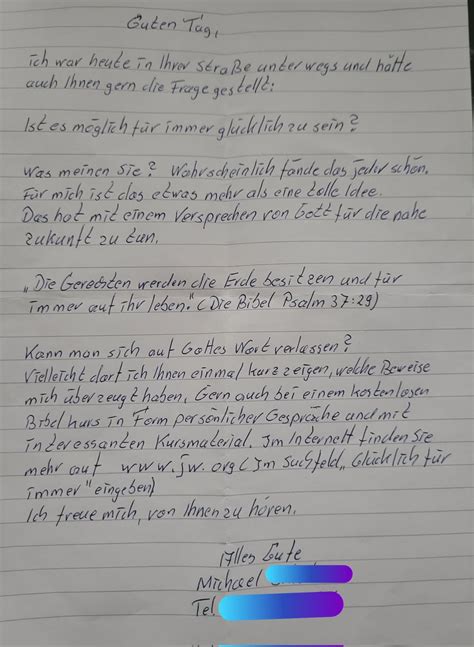 Guten Tag,
ich war heute in Ihrer Straße unterwegs und hätte
auch Ihnen gern die Frage gestellt:
Ist es möglich für immer glücklich zu sein?
Was meinen Sie? Wahrscheinlich fände das jeder schön.
Für mich ist das etwas mehr als eine tolle Idee.
Das hat mit einem Versprechen von Gott für die nahe
Zukunft zu tun.
„Die Gerechten werden die Erde besitzen und für
immer auf ihr leben." (Die Bibel Psalm 37:29)
Kann man sich auf Gottes Wort verlassen?
Vielleicht darf ich Ihnen einmal kurz zeigen, welche Beweise
mich überzeugt haben. Gern auch bei einem kostenlosen
Bibelkurs in Form persönlicher Gespräche und mit
interessanten Kursmaterial. Im Internett finden Sie
mehr auf www.jw.org (Im Suchfeld „Glücklich für
immer" eingeben)
Ich freue mich, von Ihnen zu hören.
Alles Gute
Michael
Tel.